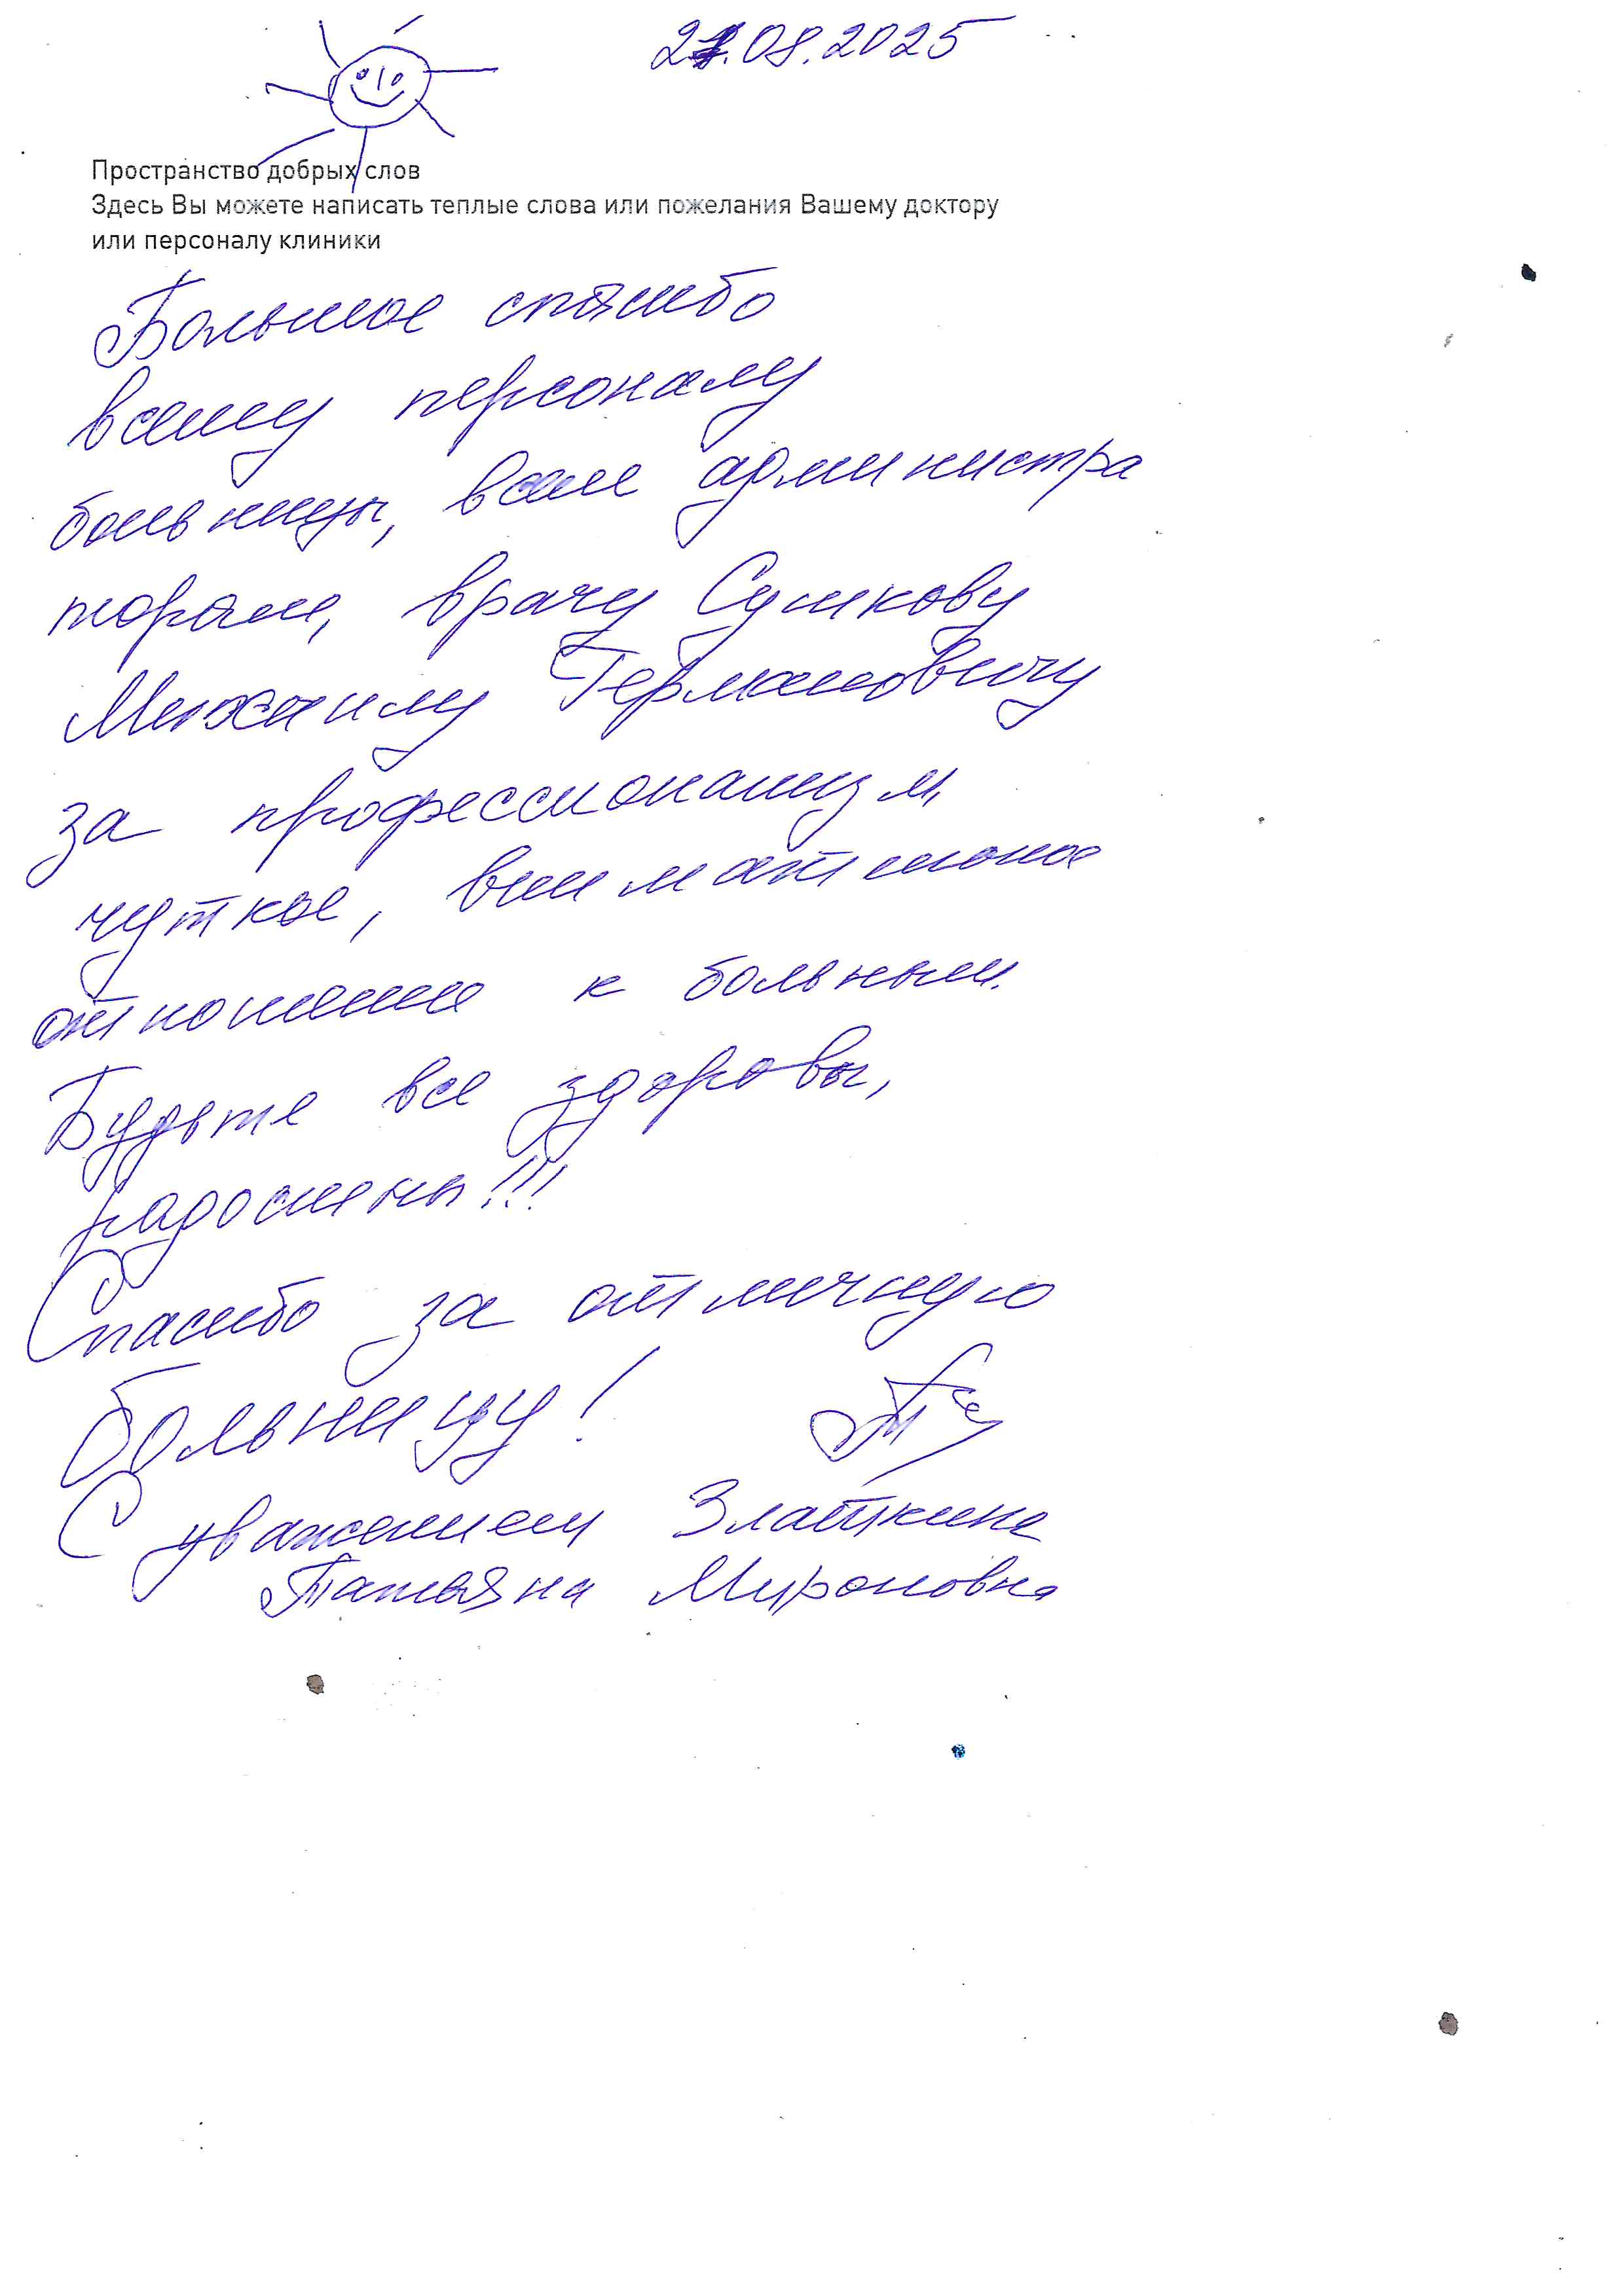 21.08.2025
Пространство добрых слов
Здесь Вы можете написать теплые слова или пожелания Вашему доктору
или персоналу клиники
Большое спасибо
всему персоналу
больницы, всем администра
торам, врачу Сушкову
Михаилу Германовичу
за профессионализм,
чуткое, внимательное
отношение к больным.
Будьте все здоровы,
радостны!!!
Спасибо за отличную
больницу!
С уважением Златкина
Татьяна Мироновна